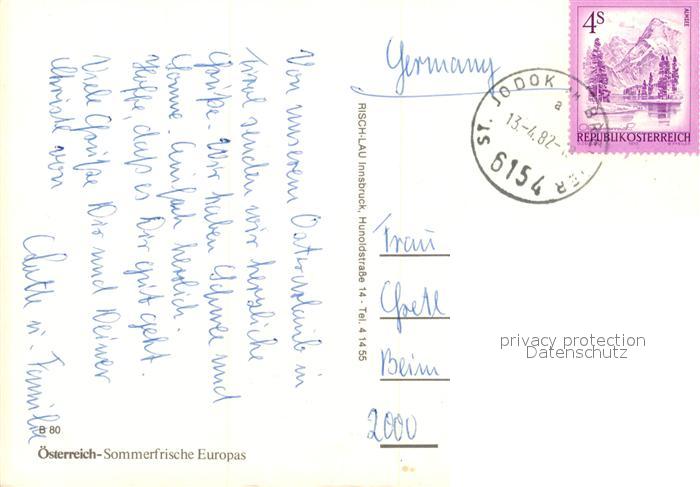 Von unserem Österurlaub in
Tirol senden wir herzliche
Grüße. Wir haben Schnee und
Sonne. Einfach herrlich.
Hoffe, daß es Dir gut geht.
Viele Grüße Dir und Deiner
von
u. Familie
B 80
Österreich-Sommerfrische Europas
RISCH-LAU Innsbruck, Hunoldstraße 14 - Tel. 4 14 55
Germany
4S
ALMSEE
REPUBLIK ÖSTERREICH
ST. JODOK AM BRENNER
a
13.-4.82-
6154
Frau
Gretl
Beim
2000
privacy protection
Datenschutz